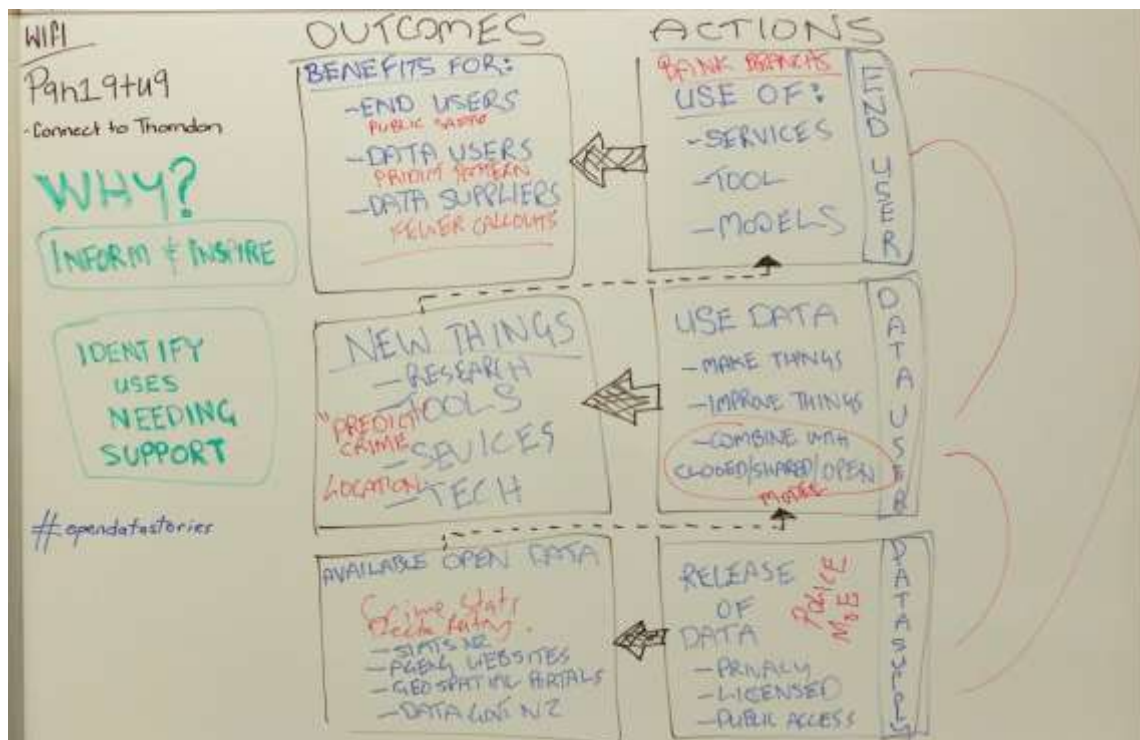 WIFI
- Connect to Thorndon
WHY?
INFORM & INSPIRE
IDENTIFY
USES
NEEDING
SUPPORT
#opendatastories
OUTCOMES
BENEFITS FOR:
- END USERS
PUBLIC
- DATA USERS
- DATA SUPPLIERS
FEWER CALLOUTS
NEW THINGS
- RESEARCH
- TOOLS
"PREDICT
CRIME
- SEVICES
LOCATION
- TECH
AVAILABLE OPEN DATA
Crime Stats
Rating
- STATS NZ
- AGENCY WEBSITES
- GEOSPATIAL PORTALS
- DATA GOVT NZ
ACTIONS
BANK
USE OF:
- SERVICES
- TOOL
- MODELS
END USER
USE DATA
- MAKE THINGS
- IMPROVE THINGS
- COMBINE WITH
CLOSED/SHARED/OPEN
MODEL
DATA USER
RELEASE
OF
DATA
POLICE
MOE
- PRIVACY
- LICENSED
- PUBLIC ACCESS
DATA